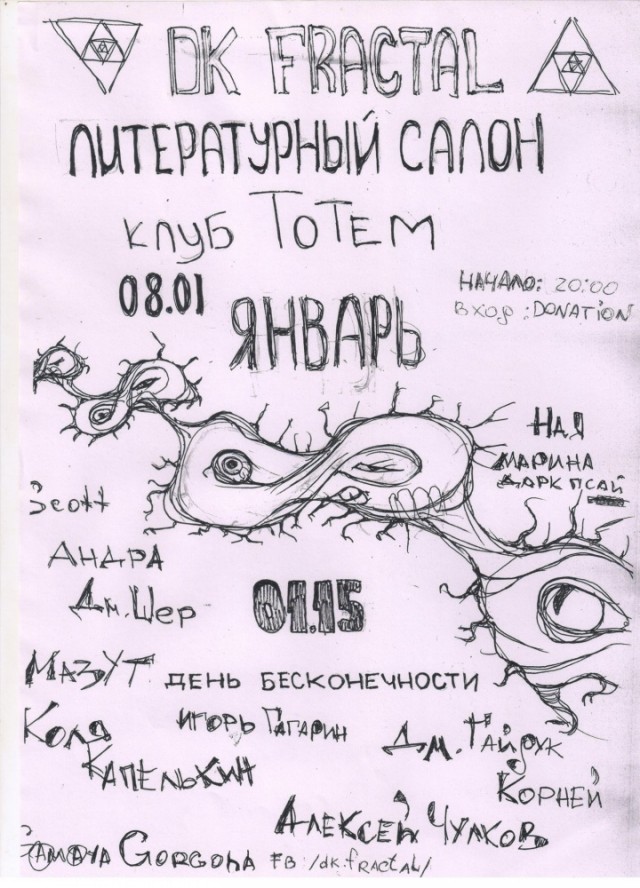 DK FRACTAL
ЛИТЕРАТУРНЫЙ САЛОН
клуб ТОТЕМ
08.01
НАЧАЛО: 20:00
вход : DONATION
ЯНВАРЬ
НАЯ
МАРИНА
ДАРК ПСАЙ
Scott
АНДРА
Дм. Шер
01.15
МАЗУТ
ДЕНЬ БЕСКОНЕЧНОСТИ
Коля
Капелькин
ИГОРЬ ГАГАРИН
Дм. Гайдук
Корней
Алексей Чулков
Gorgona FB:/dk.fractal/